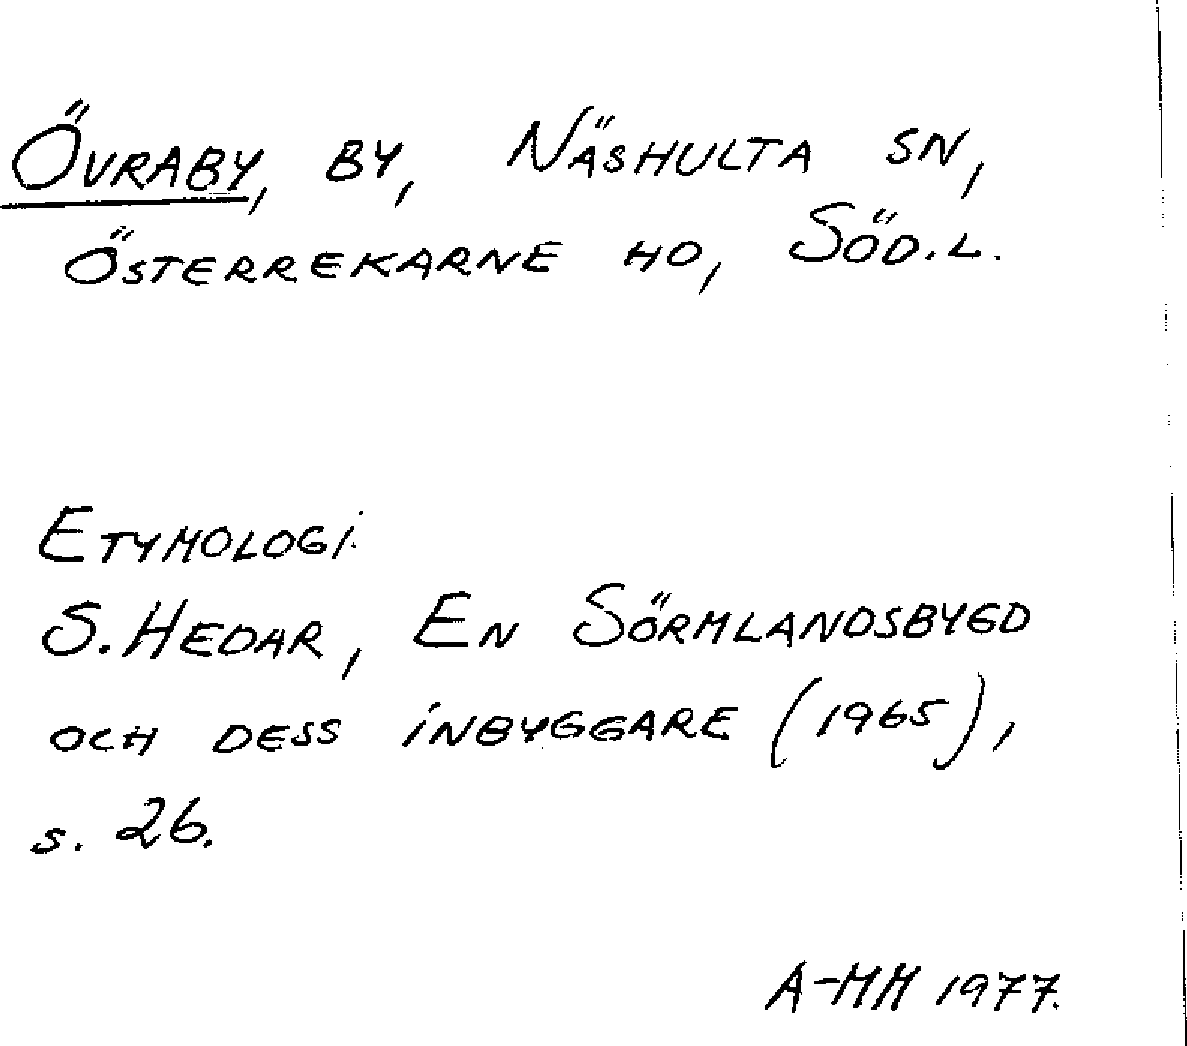 Övraby, by, Näshulta sn,
Österrekarne hd, Söd.l.
Etymologi.
S. Hedar, En Sörmlandsbygd
och dess inbyggare (1965),
s. 26.
A-MM 1977.